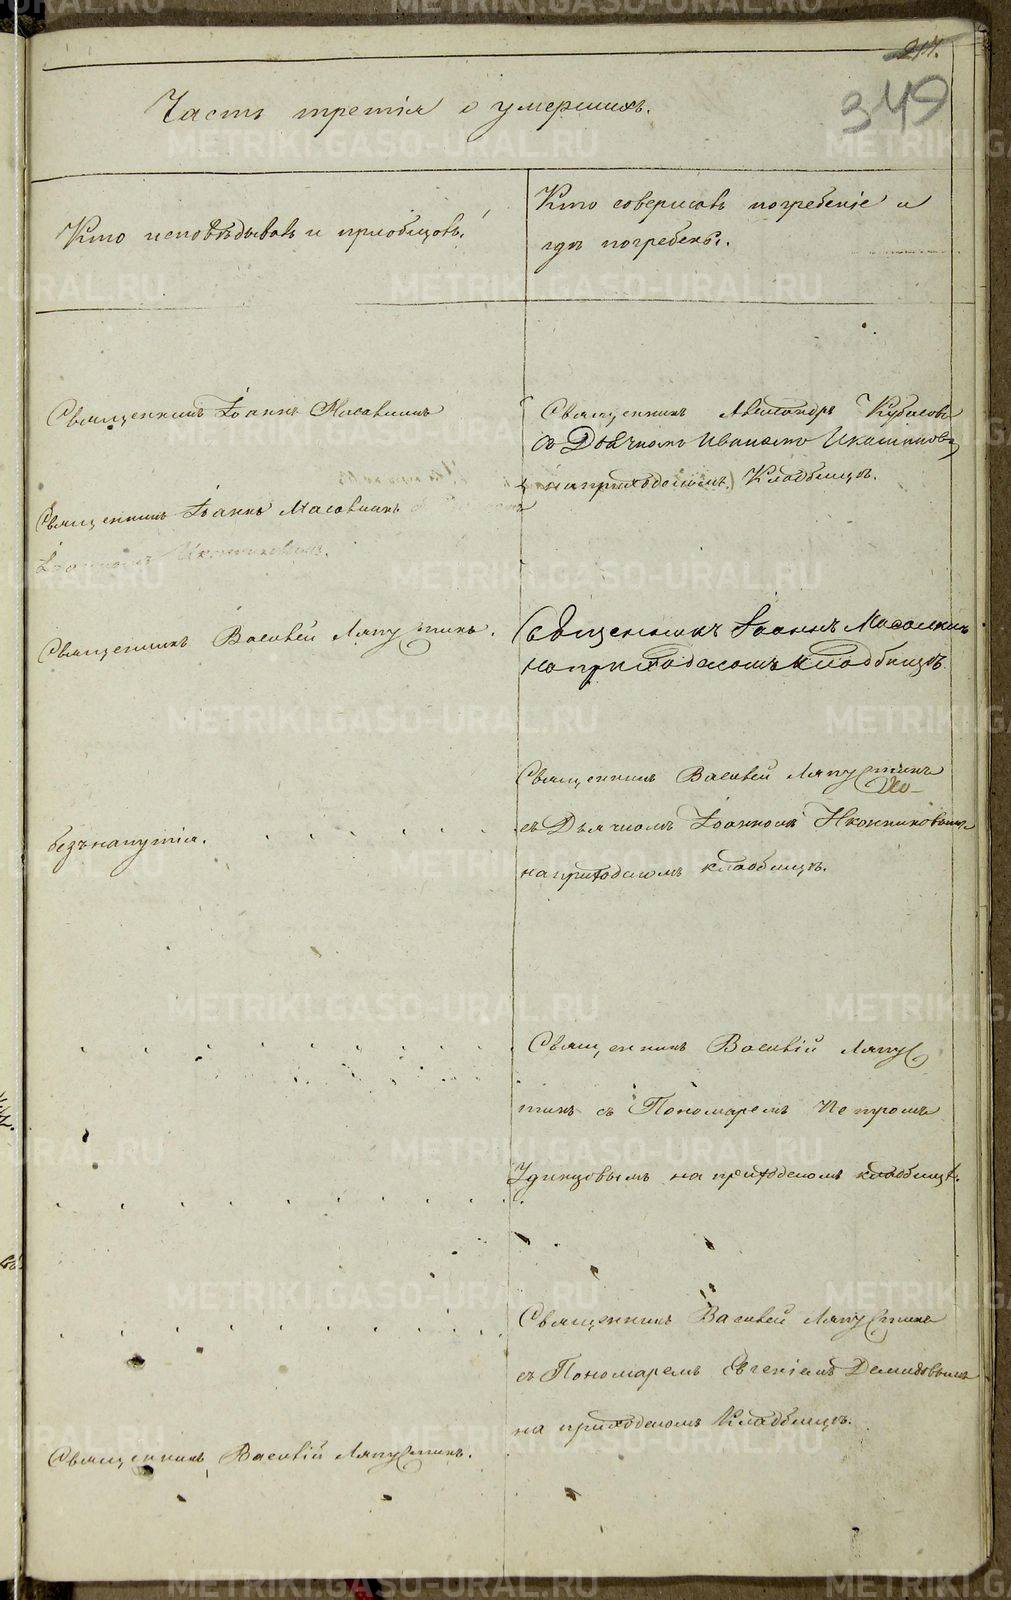 217.
349
Часть третія о умершихъ.
Кто исповѣдывалъ и пріобщалъ.
Кто совершалъ погребеніе и
гдѣ погребены.
Священникъ Іоаннъ Масовскихъ
Священникъ Александръ Кубасовъ
съ Дьячкомъ Иваномъ
на приходскомъ Кладбищѣ.
Священникъ Іоаннъ
Иконниковымъ.
Священникъ Василій Ляпустинъ.
Священникъ Іоаннъ
на приходскомъ кладбищѣ
Священникъ Василій Ляпустинъ
безъ напутія.
съ Дьячкомъ Іоанномъ Иконниковымъ
на приходскомъ кладбищѣ.
Священникъ Василій Ляпус
тинъ съ Пономаремъ Петромъ
Удинцовымъ на приходскомъ кладбищѣ.
Священникъ Василій Ляпустинъ
съ Пономаремъ Евгеніемъ Демидовымъ
на приходскомъ Кладбищѣ.
Священникъ Василій Ляпустинъ.
METRIKI.GASO-URAL.RU